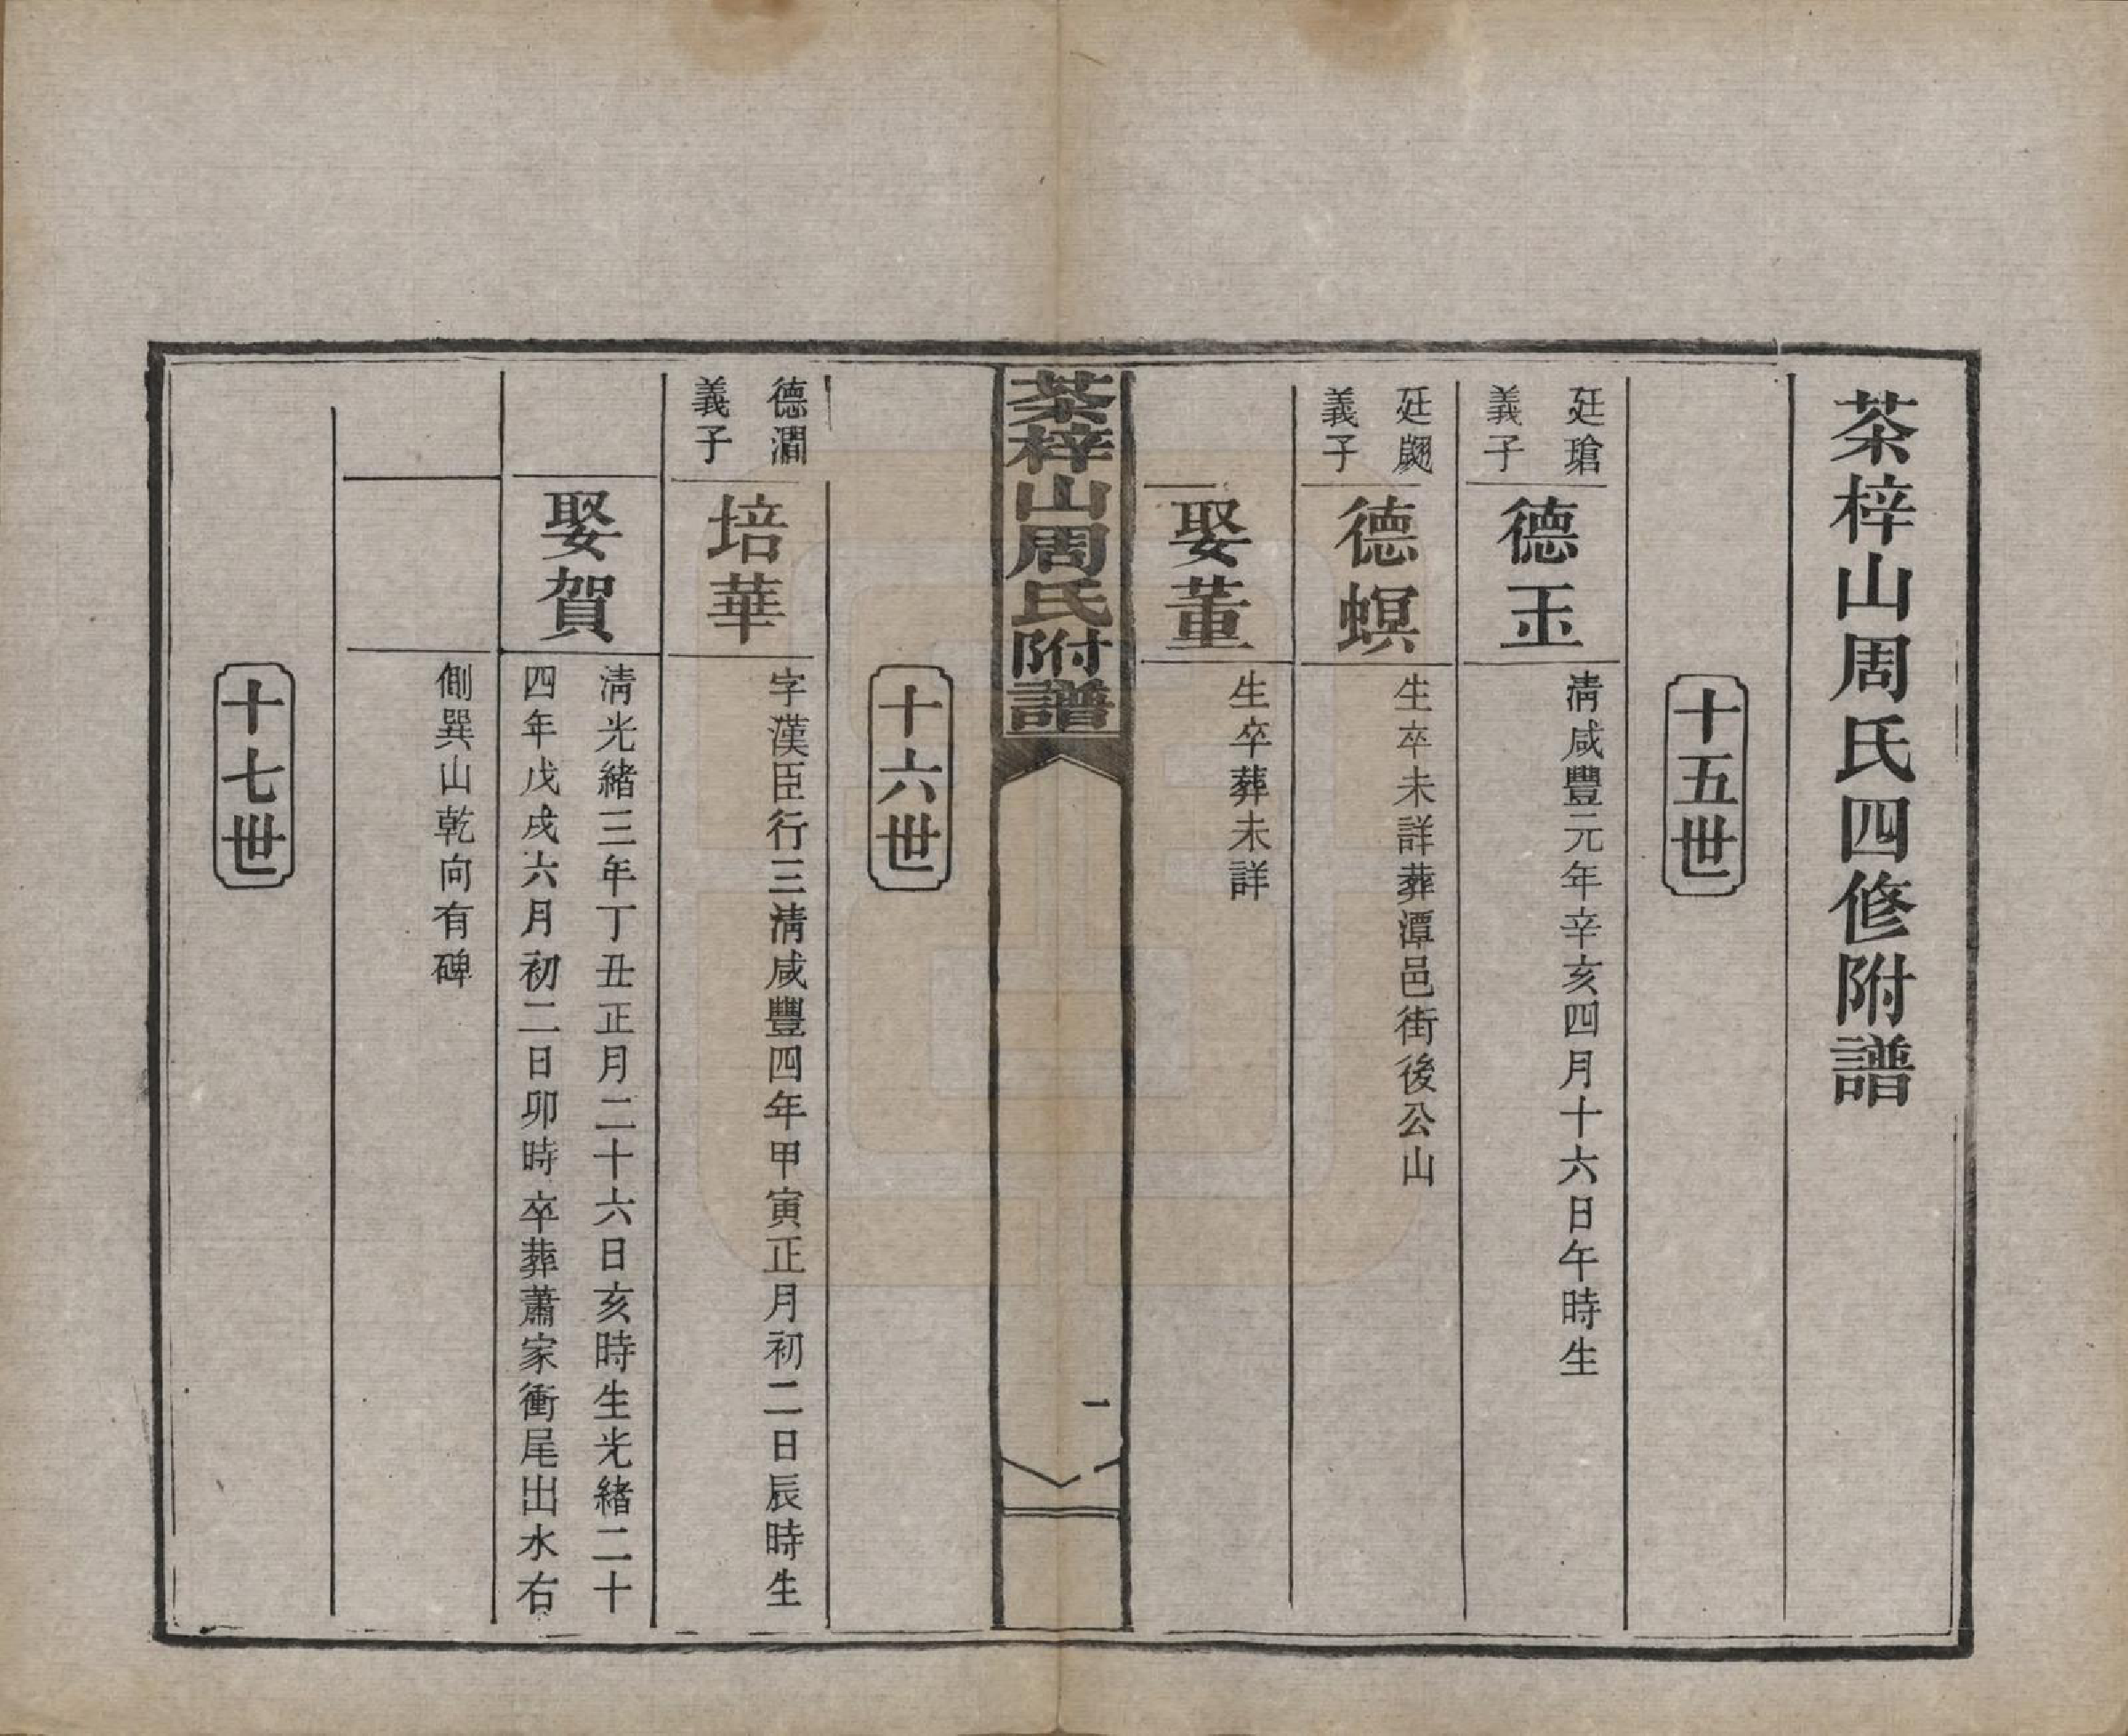 茶梓山周氏四修附譜
十五世
廷瑲
義子
德玉
清咸豐元年辛亥四月十六日午時生
廷翽
義子
德螟
生卒未詳葬潭邑街後公山
娶董
生卒葬未詳
茶梓山周氏附譜
一
十六世
德澗
義子
培華
字漢臣行三清咸豐四年甲寅正月初二日辰時生
娶賀
清光緒三年丁丑正月二十六日亥時生光緒二十
四年戊戌六月初二日卯時卒葬蕭家衝尾出水右
側巽山乾向有碑
十七世